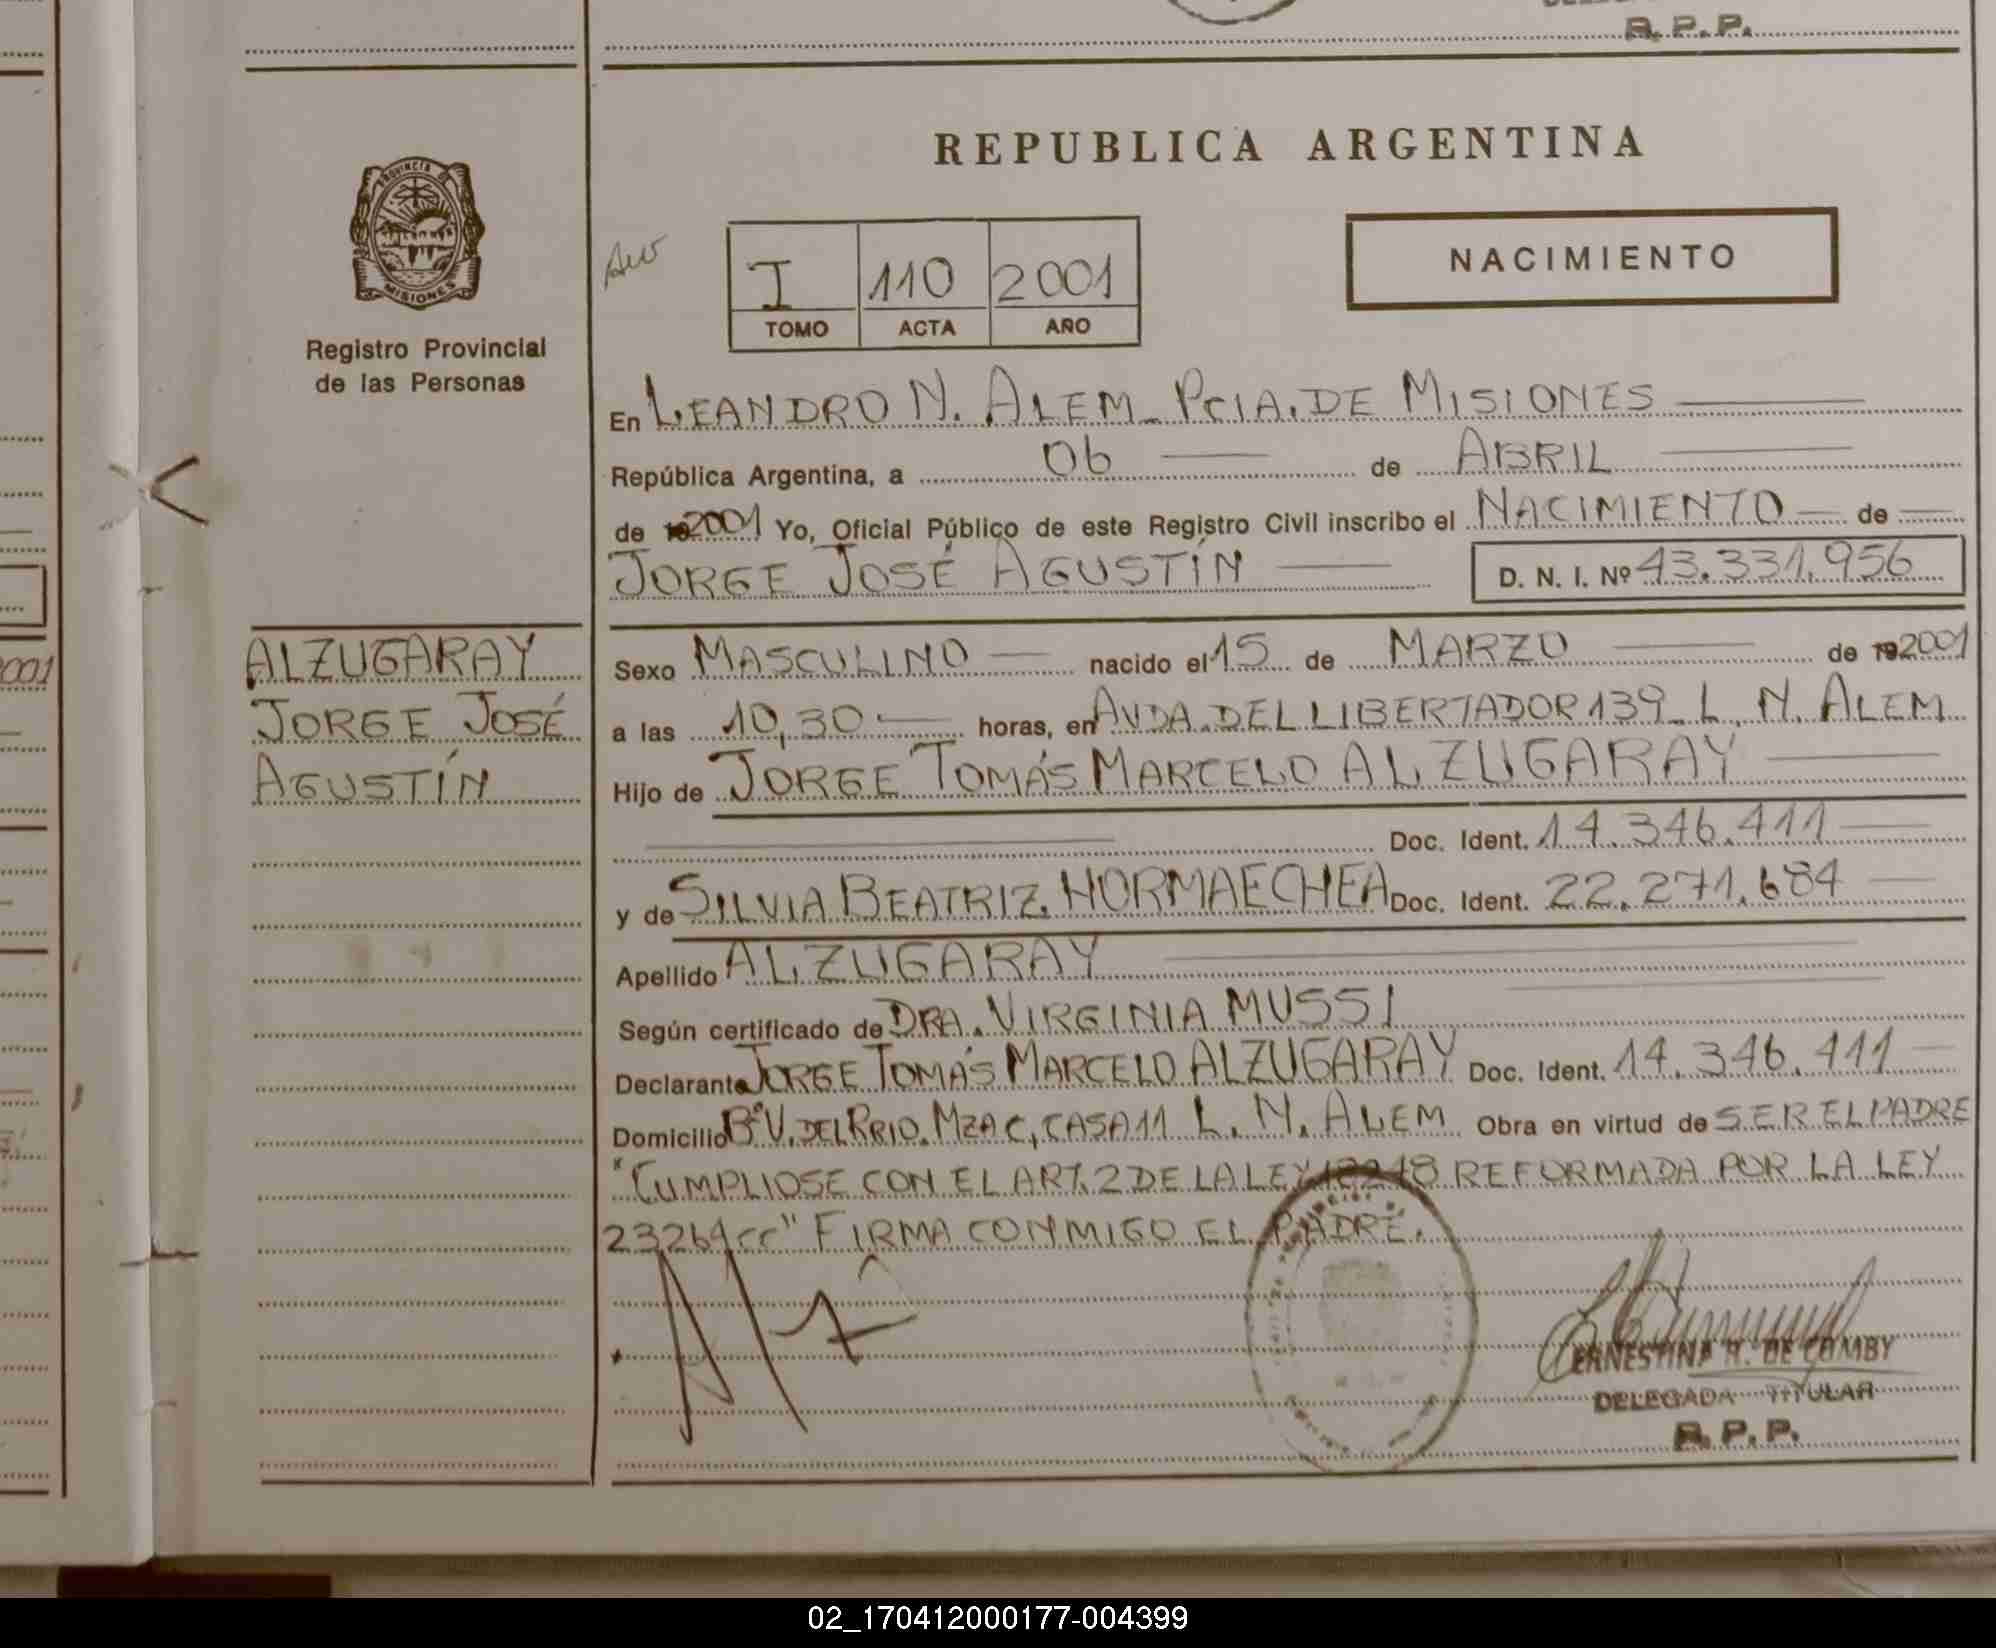 R.P.P.
REPUBLICA ARGENTINA
PROVINCIA DE
MISIONES
Registro Provincial
de las Personas
I 110 2001
TOMO ACTA AÑO
NACIMIENTO
En LEANDRO N. ALEM_ PCIA. DE MISIONES
República Argentina, a 06 de ABRIL
de 192001 Yo, Oficial Público de este Registro Civil inscribo el NACIMIENTO de
JORGE JOSÉ AGUSTÍN D. N. I. Nº 43.331.956
ALZUGARAY
JORGE JOSÉ
AGUSTÍN
2001
Sexo MASCULINO nacido el 15 de MARZO de 192001
a las 10,30 horas, en AVDA. DEL LIBERTADOR 139_ L. N. ALEM
Hijo de JORGE TOMÁS MARCELO ALZUGARAY
Doc. Ident. 14.346.411
y de SILVIA BEATRIZ. HORMAECHEA Doc. Ident. 22.271.684
Apellido ALZUGARAY
Según certificado de DRA. VIRGINIA MUSSI
Declarante JORGE TOMÁS MARCELO ALZUGARAY Doc. Ident. 14.346.411
Domicilio Bº V. DEL RRIO. MZA C, CASA 11 L. N. ALEM Obra en virtud de SER EL PADRE
"CUMPLIOSE CON EL ART. 2 DE LA LEY 18248 REFORMADA POR LA LEY
23264cc" FIRMA CONMIGO EL PADRE.
ERNESTINA R. DE COMBY
DELEGADA TITULAR
R.P.P.
02_170412000177-004399